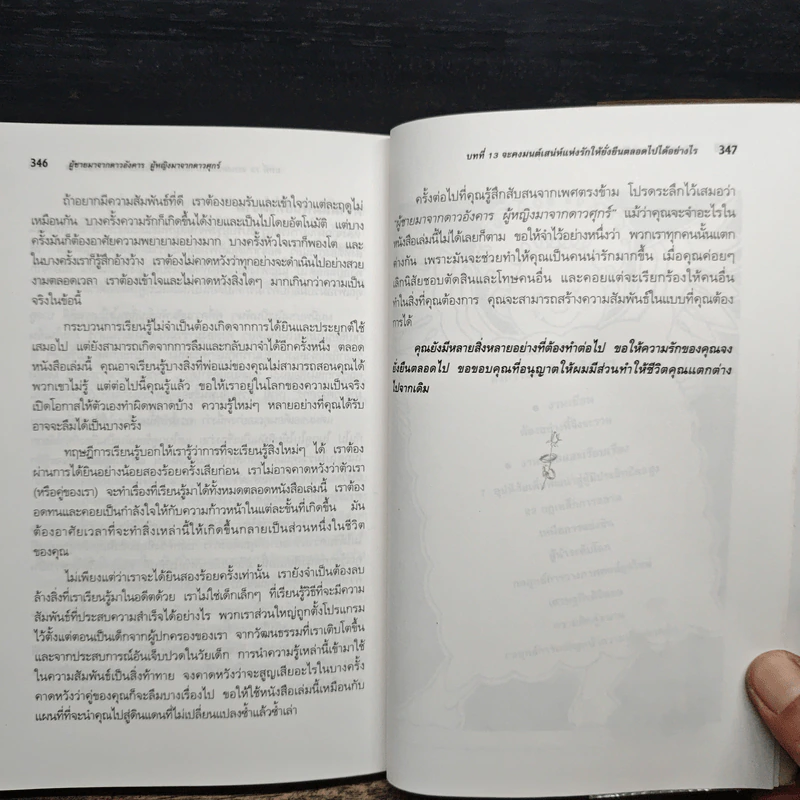 346 ผู้ชายมาจากดาวอังคาร ผู้หญิงมาจากดาวศุกร์
ถ้าอยากมีความสัมพันธ์ที่ดี เราต้องยอมรับและเข้าใจว่าแต่ละฤดูไม่
เหมือนกัน บางครั้งความรักก็เกิดขึ้นได้ง่ายและเป็นไปโดยอัตโนมัติ แต่บาง
ครั้งมันก็ต้องอาศัยความพยายามอย่างมาก บางครั้งหัวใจเราก็พองโต และ
ในบางครั้งเราก็รู้สึกอ้างว้าง เราต้องไม่คาดหวังว่าทุกอย่างจะดำเนินไปอย่างสวย
งามตลอดเวลา เราต้องเข้าใจและไม่คาดหวังสิ่งใดๆ มากเกินกว่าความเป็น
จริงในข้อนี้
กระบวนการเรียนรู้ไม่จำเป็นต้องเกิดจากการได้ยินและประยุกต์ใช้
เสมอไป แต่ยังสามารถเกิดจากการลืมและกลับมาจำได้อีกครั้งหนึ่ง ตลอด
หนังสือเล่มนี้ คุณอาจเรียนรู้บางสิ่งที่พ่อแม่ของคุณไม่สามารถสอนคุณได้
พวกเขาไม่รู้ แต่ต่อไปนี้คุณรู้แล้ว ขอให้เราอยู่ในโลกของความเป็นจริง
เปิดโอกาสให้ตัวเองทำผิดพลาดบ้าง ความรู้ใหม่ๆ หลายอย่างที่คุณได้รับ
อาจจะลืมได้เป็นบางครั้ง
ทฤษฎีการเรียนรู้บอกให้เรารู้ว่าการที่จะเรียนรู้สิ่งใหม่ๆ ได้ เราต้อง
ผ่านการได้ยินอย่างน้อยสองร้อยครั้งเสียก่อน เราไม่อาจคาดหวังว่าตัวเรา
(หรือคู่ของเรา) จะทำเรื่องที่เรียนรู้มาได้ทั้งหมดตลอดหนังสือเล่มนี้ เราต้อง
อดทนและคอยเป็นกำลังใจให้กับความก้าวหน้าในแต่ละขั้นที่เกิดขึ้น มัน
ต้องอาศัยเวลาที่จะทำสิ่งเหล่านี้ให้เกิดขึ้นกลายเป็นส่วนหนึ่งในชีวิต
ของคุณ
ไม่เพียงแต่ว่าเราจะได้ยินสองร้อยครั้งเท่านั้น เรายังจำเป็นต้องลบ
ล้างสิ่งที่เราเรียนรู้มาในอดีตด้วย เราไม่ใช่เด็กเล็กๆ ที่เรียนรู้วิธีที่จะมีความ
สัมพันธ์ที่ประสบความสำเร็จได้อย่างไร พวกเราส่วนใหญ่ถูกตั้งโปรแกรม
ไว้ตั้งแต่ตอนเป็นเด็กจากผู้ปกครองของเรา จากวัฒนธรรมที่เราเติบโตขึ้น
และจากประสบการณ์อันเจ็บปวดในวัยเด็ก การนำความรู้เหล่านี้เข้ามาใช้
ในความสัมพันธ์เป็นสิ่งท้าทาย จงคาดหวังว่าจะสูญเสียอะไรในบางครั้ง
คาดหวังว่าคู่ของคุณก็จะลืมบางเรื่องไป ขอให้ใช้หนังสือเล่มนี้เหมือนกับ
แผนที่ที่จะนำคุณไปสู่ดินแดนที่ไม่เปลี่ยนแปลงซ้ำแล้วซ้ำเล่า
บทที่ 13 จะคงมนต์เสน่ห์แห่งรักให้ยั่งยืนตลอดไปได้อย่างไร 347
ครั้งต่อไปที่คุณรู้สึกสับสนจากเพศตรงข้าม โปรดระลึกไว้เสมอว่า
"ผู้ชายมาจากดาวอังคาร ผู้หญิงมาจากดาวศุกร์" แม้ว่าคุณจะจำอะไรใน
หนังสือเล่มนี้ไม่ได้เลยก็ตาม ขอให้จำไว้อย่างหนึ่งว่า พวกเราทุกคนนั้นแตก
ต่างกัน เพราะมันจะช่วยทำให้คุณเป็นคนน่ารักมากขึ้น เมื่อคุณค่อยๆ
เลิกนิสัยชอบตัดสินและโทษคนอื่น และคอยแต่จะเรียกร้องให้คนอื่น
ทำในสิ่งที่คุณต้องการ คุณจะสามารถสร้างความสัมพันธ์ในแบบที่คุณต้อง
การได้
คุณยังมีหลายสิ่งหลายอย่างที่ต้องทำต่อไป ขอให้ความรักของคุณจง
ยั่งยืนตลอดไป ขอขอบคุณที่อนุญาตให้ผมมีส่วนทำให้ชีวิตคุณแตกต่าง
ไปจากเดิม